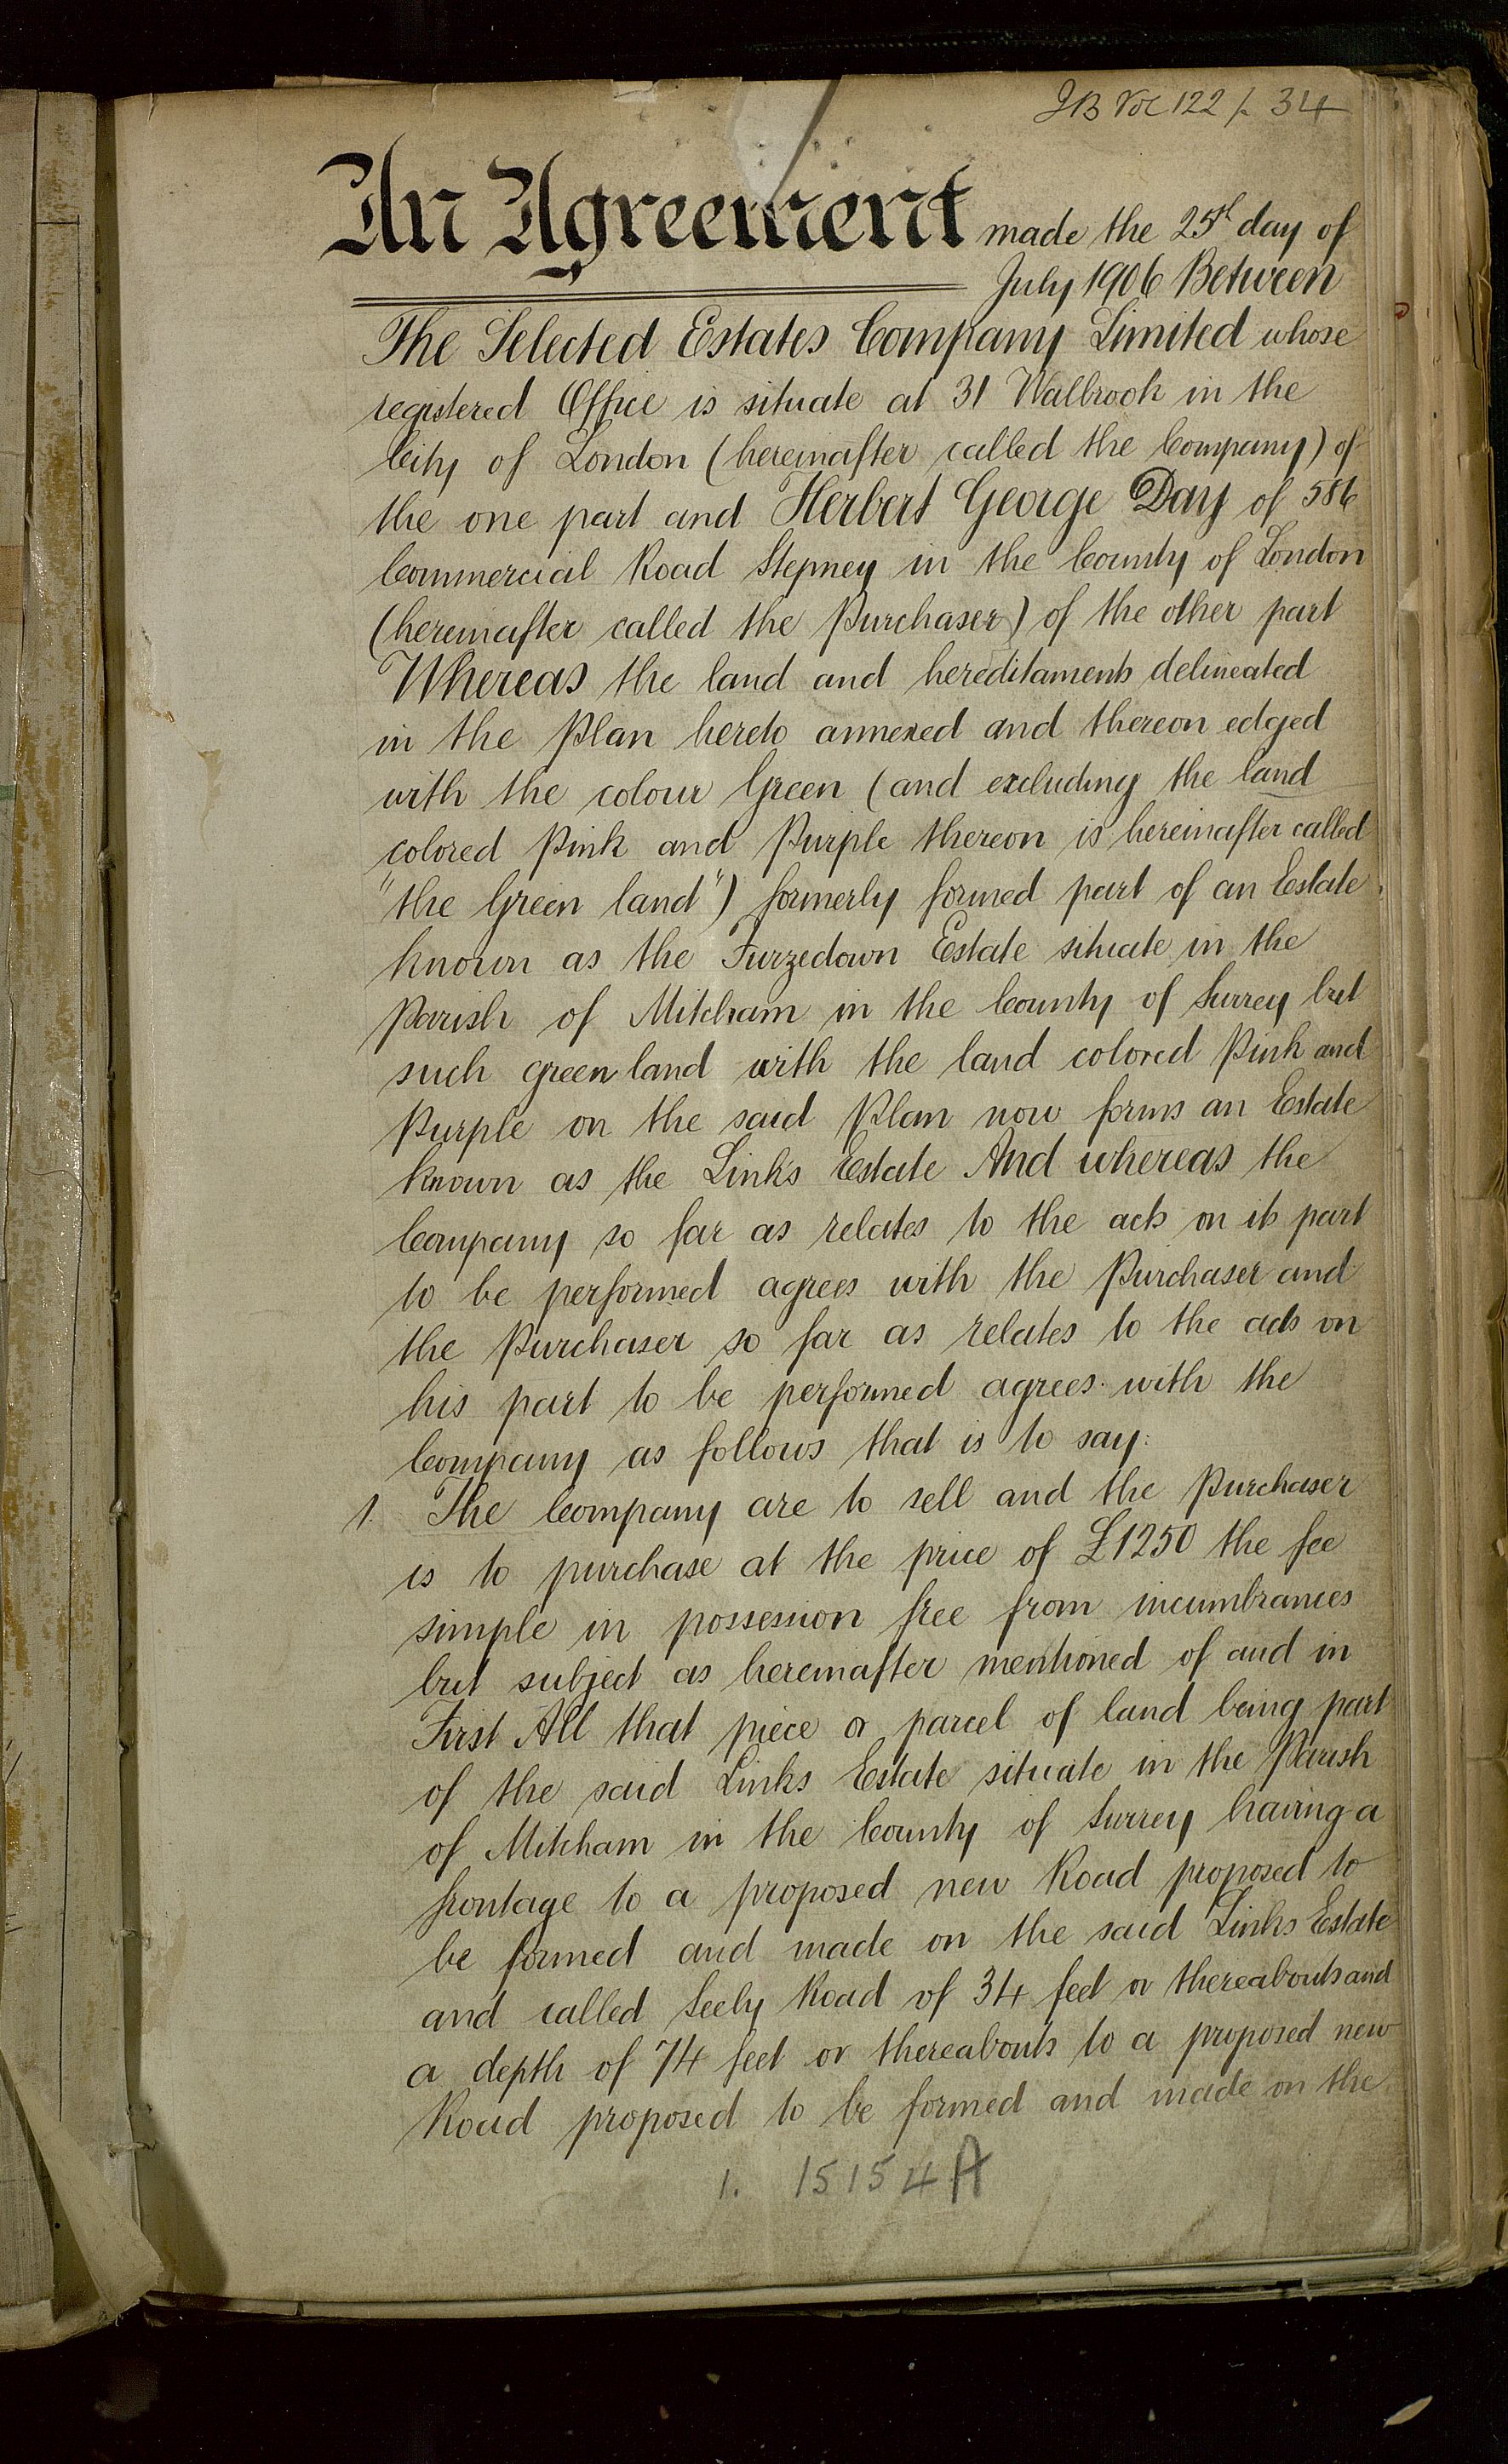 JB Vol 122 p. 34
An Agreement made the 25th day of
July 1906 Between
The Selected Estates Company Limited whose
registered Office is situate at 31 Walbrook in the
City of London (hereinafter called the Company) of
the one part and Herbert George Day of 586
Commercial Road Stepney in the County of London
(hereinafter called the Purchaser) of the other part
Whereas the land and hereditaments delineated
in the Plan hereto annexed and thereon edged
with the colour Green (and excluding the land
colored Pink and Purple thereon is hereinafter called
"the Green land") formerly formed part of an Estate
known as the Furzedown Estate situate in the
Parish of Mitcham in the County of Surrey but
such green land with the land colored Pink and
Purple on the said Plan now forms an Estate
known as the Links Estate And whereas the
Company so far as relates to the acts on its part
to be performed agrees with the Purchaser and
the Purchaser so far as relates to the acts on
his part to be performed agrees with the
Company as follows that is to say:
1. The Company are to sell and the Purchaser
is to purchase at the price of £1250 the fee
simple in possession free from incumbrances
but subject as hereinafter mentioned of and in
First All that piece or parcel of land being part
of the said Links Estate situate in the Parish
of Mitcham in the County of Surrey having a
frontage to a proposed new Road proposed to
be formed and made on the said Links Estate
and called Seely Road of 34 feet or thereabouts and
a depth of 74 feet or thereabouts to a proposed new
Road proposed to be formed and made on the
1. 15154A